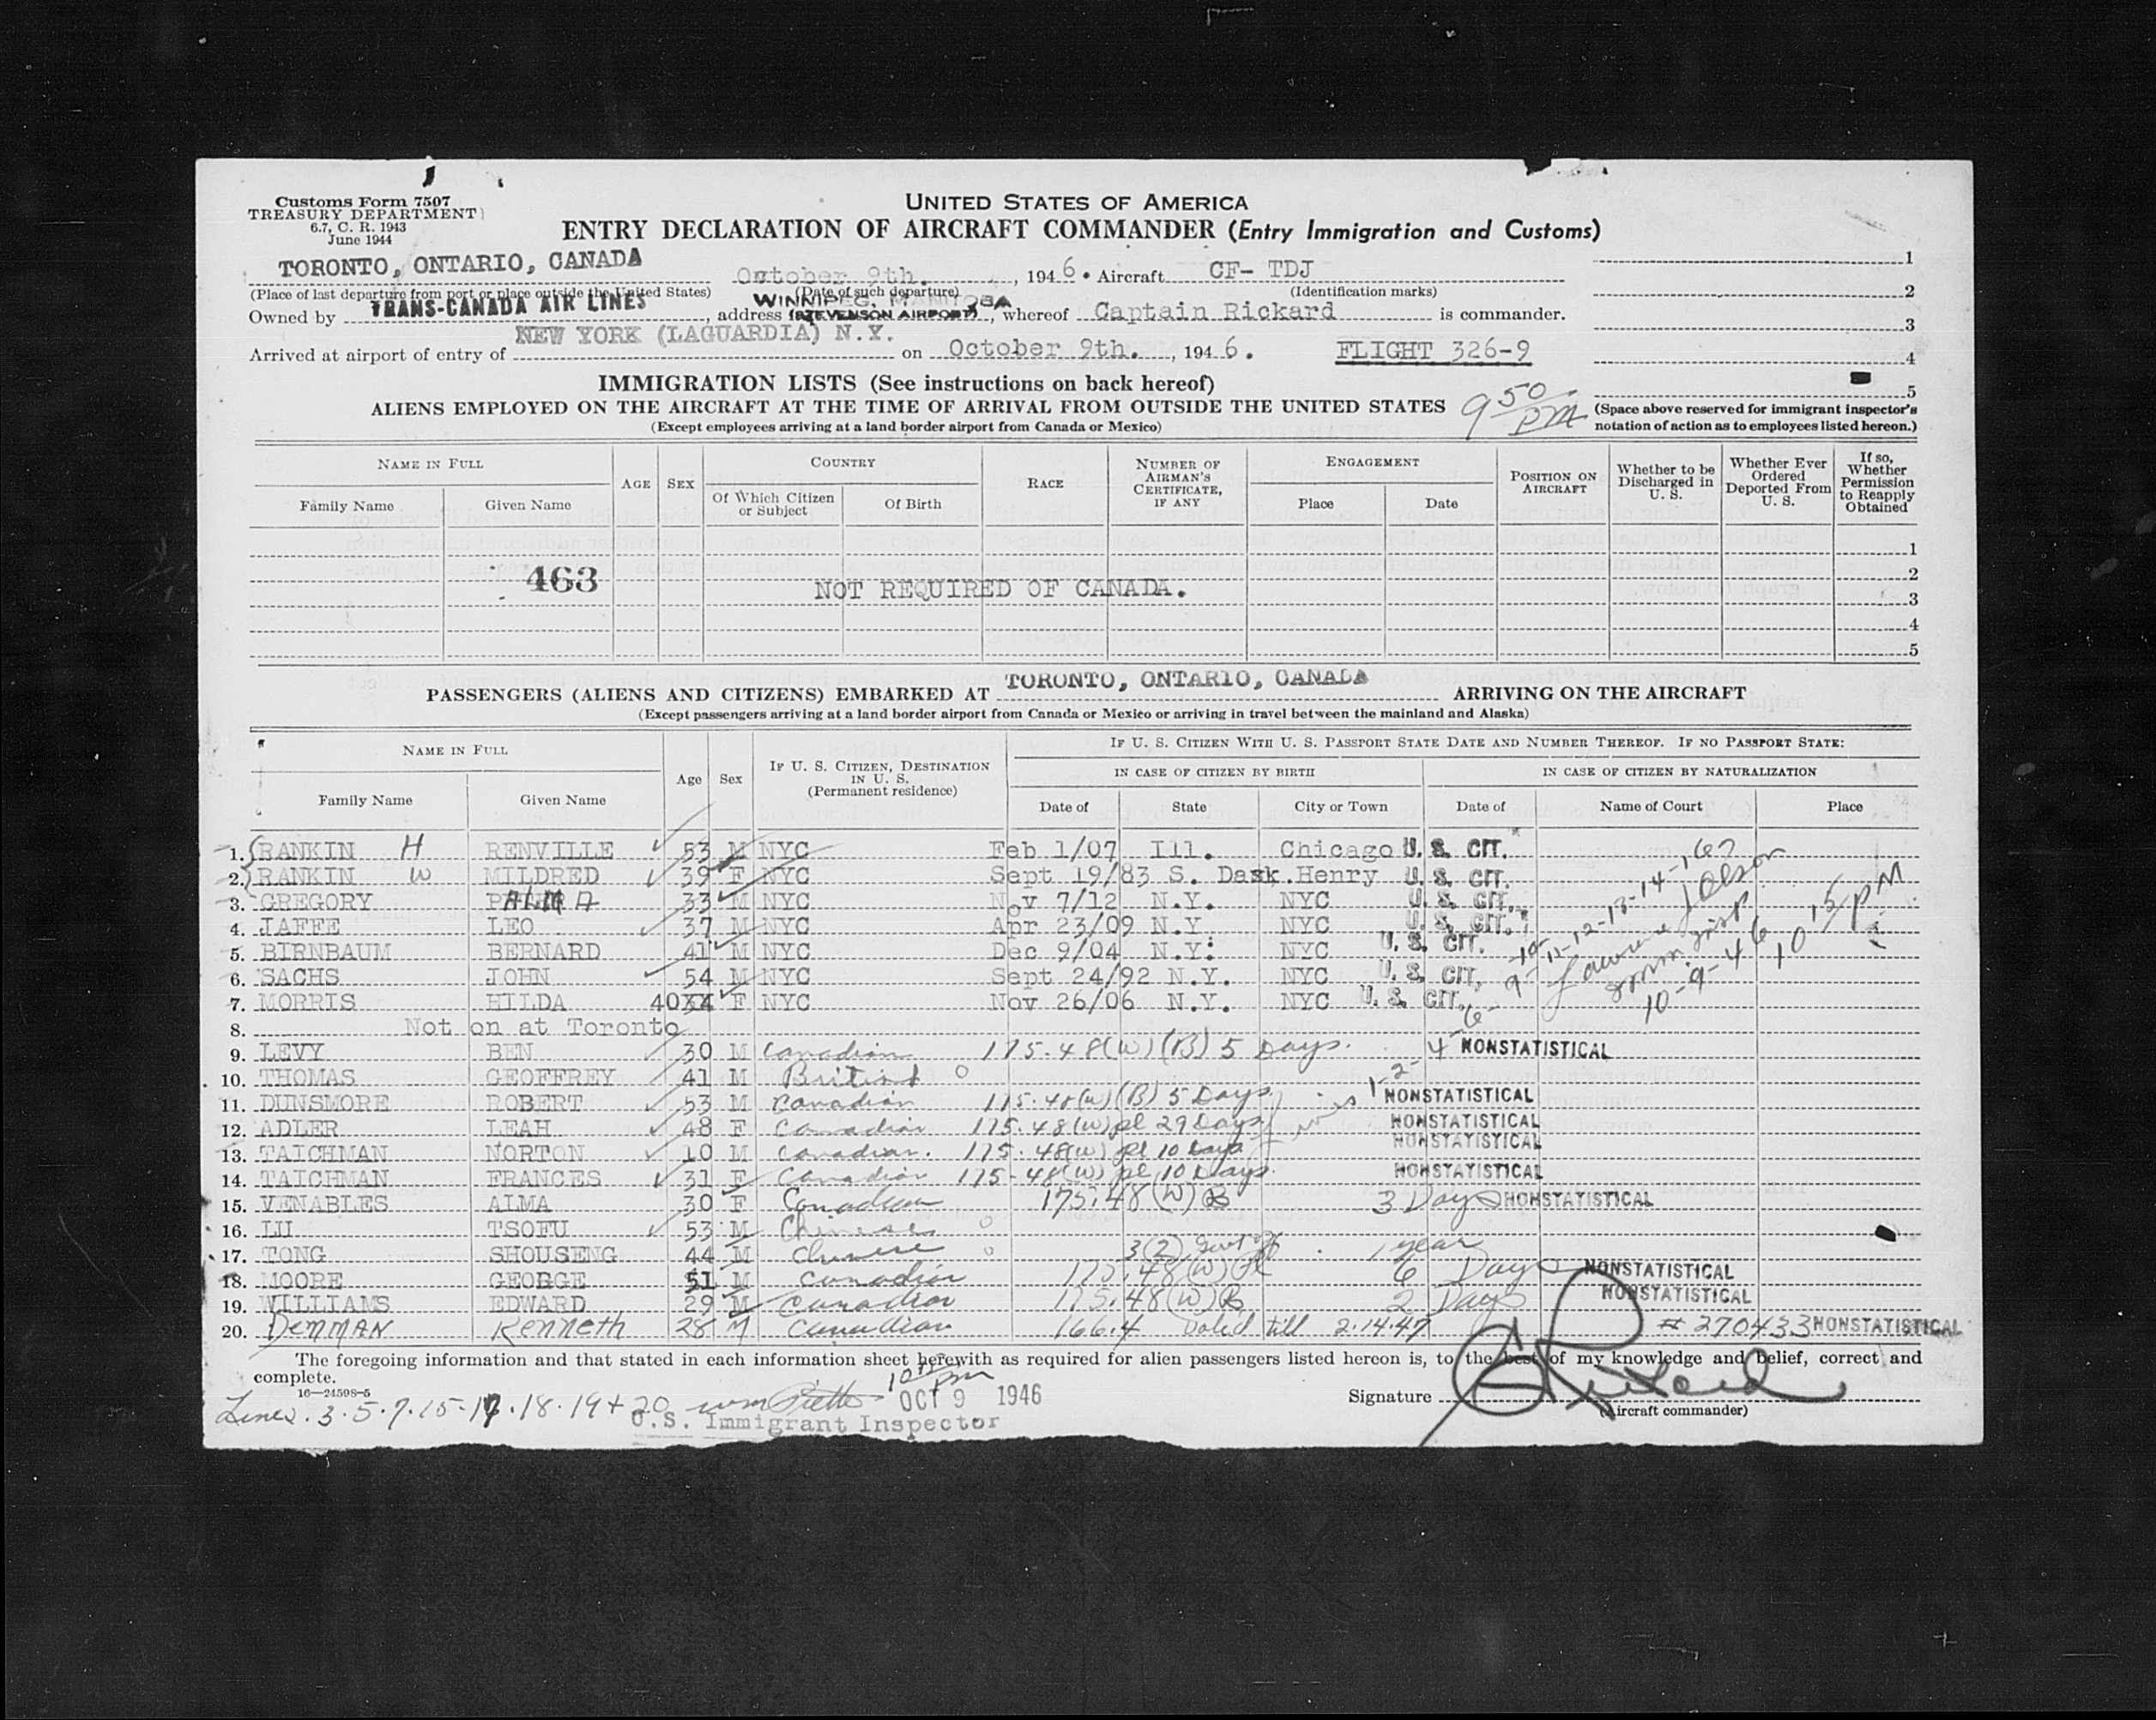 Customs Form 7507
TREASURY DEPARTMENT
6.7, C. R. 1943
June 1944
UNITED STATES OF AMERICA
ENTRY DECLARATION OF AIRCRAFT COMMANDER (Entry Immigration and Customs)
TORONTO, ONTARIO, CANADA October 9th. , 1946 • Aircraft CF- TDJ 1
(Place of last departure from port or place outside the United States) (Date of such departure) (Identification marks) 2
Owned by TRANS-CANADA AIR LINES , address WINNIPEG, MANITOBA (STEVENSON AIRPORT) , whereof Captain Rickard is commander. 3
Arrived at airport of entry of NEW YORK (LAGUARDIA) N.Y. on October 9th. , 1946. FLIGHT 326-9 4
5
IMMIGRATION LISTS (See instructions on back hereof)
ALIENS EMPLOYED ON THE AIRCRAFT AT THE TIME OF ARRIVAL FROM OUTSIDE THE UNITED STATES 9 50 PM
(Space above reserved for immigrant inspector's notation of action as to employees listed hereon.)
(Except employees arriving at a land border airport from Canada or Mexico)
NAME IN FULL
Family Name Given Name
AGE SEX
COUNTRY
Of Which Citizen or Subject Of Birth
RACE
NUMBER OF AIRMAN'S CERTIFICATE, IF ANY
ENGAGEMENT
Place Date
POSITION ON AIRCRAFT
Whether to be Discharged in U. S.
Whether Ever Ordered Deported From U. S.
If so, Whether Permission to Reapply Obtained
1
2
463 NOT REQUIRED OF CANADA.
3
4
5
PASSENGERS (ALIENS AND CITIZENS) EMBARKED AT TORONTO, ONTARIO, CANADA ARRIVING ON THE AIRCRAFT
(Except passengers arriving at a land border airport from Canada or Mexico or arriving in travel between the mainland and Alaska)
NAME IN FULL
Family Name Given Name
Age Sex
IF U. S. CITIZEN, DESTINATION IN U. S. (Permanent residence)
IF U. S. CITIZEN WITH U. S. PASSPORT STATE DATE AND NUMBER THEREOF. IF NO PASSPORT STATE:
IN CASE OF CITIZEN BY BIRTH IN CASE OF CITIZEN BY NATURALIZATION
Date of State City or Town Date of Name of Court Place
1. RANKIN H RENVILLE 53 M NYC Feb 1/07 Ill. Chicago U. S. CIT.
2. RANKIN W MILDRED 39 F NYC Sept 19/83 S. Dask. Henry U. S. CIT.
3. GREGORY ALMA 33 M NYC Nov 7/12 N.Y. NYC U. S. CIT.
4. JAFFE LEO 37 M NYC Apr 23/09 N.Y NYC U. S. CIT.
5. BIRNBAUM BERNARD 41 M NYC Dec 9/04 N.Y. NYC U. S. CIT.
6. SACHS JOHN 54 M NYC Sept 24/92 N.Y. NYC U. S. CIT.
7. MORRIS HILDA 40 F NYC Nov 26/06 N.Y. NYC U. S. CIT.
10-9-46 10 15 PM
8. Not on at Toronto
9. LEVY BEN 30 M Canadian 175.48(W) (B) 5 Days. NONSTATISTICAL
10. THOMAS GEOFFREY 41 M British
11. DUNSMORE ROBERT 53 M Canadian 175.48(W) (B) 5 Days NONSTATISTICAL
12. ADLER LEAH 48 F Canadian 175.48(W) pl 29 Days NONSTATISTICAL
13. TAICHMAN NORTON 10 M Canadian. 175.48(W) pl 10 Days NONSTATISTICAL
14. TAICHMAN FRANCES 31 F Canadian 175-48(W) pl 10 Days. NONSTATISTICAL
15. VENABLES ALMA 30 F Canadian 175.48 (W) B 3 Days NONSTATISTICAL
16. LU TSOFU 53 M Chinese
17. TONG SHOUSENG 44 M Chinese 3(2) Govt 1 year
18. MOORE GEORGE 51 M Canadian 175.48(W) Pl 6 Days NONSTATISTICAL
19. WILLIAMS EDWARD 29 M Canadian 175.48(W) B 2 Days NONSTATISTICAL
20. DENMAN Kenneth 28 M Canadian 166.4 Valid till 2.14.47 # 270433 NONSTATISTICAL
The foregoing information and that stated in each information sheet herewith as required for alien passengers listed hereon is, to the best of my knowledge and belief, correct and
complete.
16—24598-5
Lines. 3.5.7.15-17.18.19+20 OCT 9 1946 Signature
U.S. Immigrant Inspector (Aircraft commander)